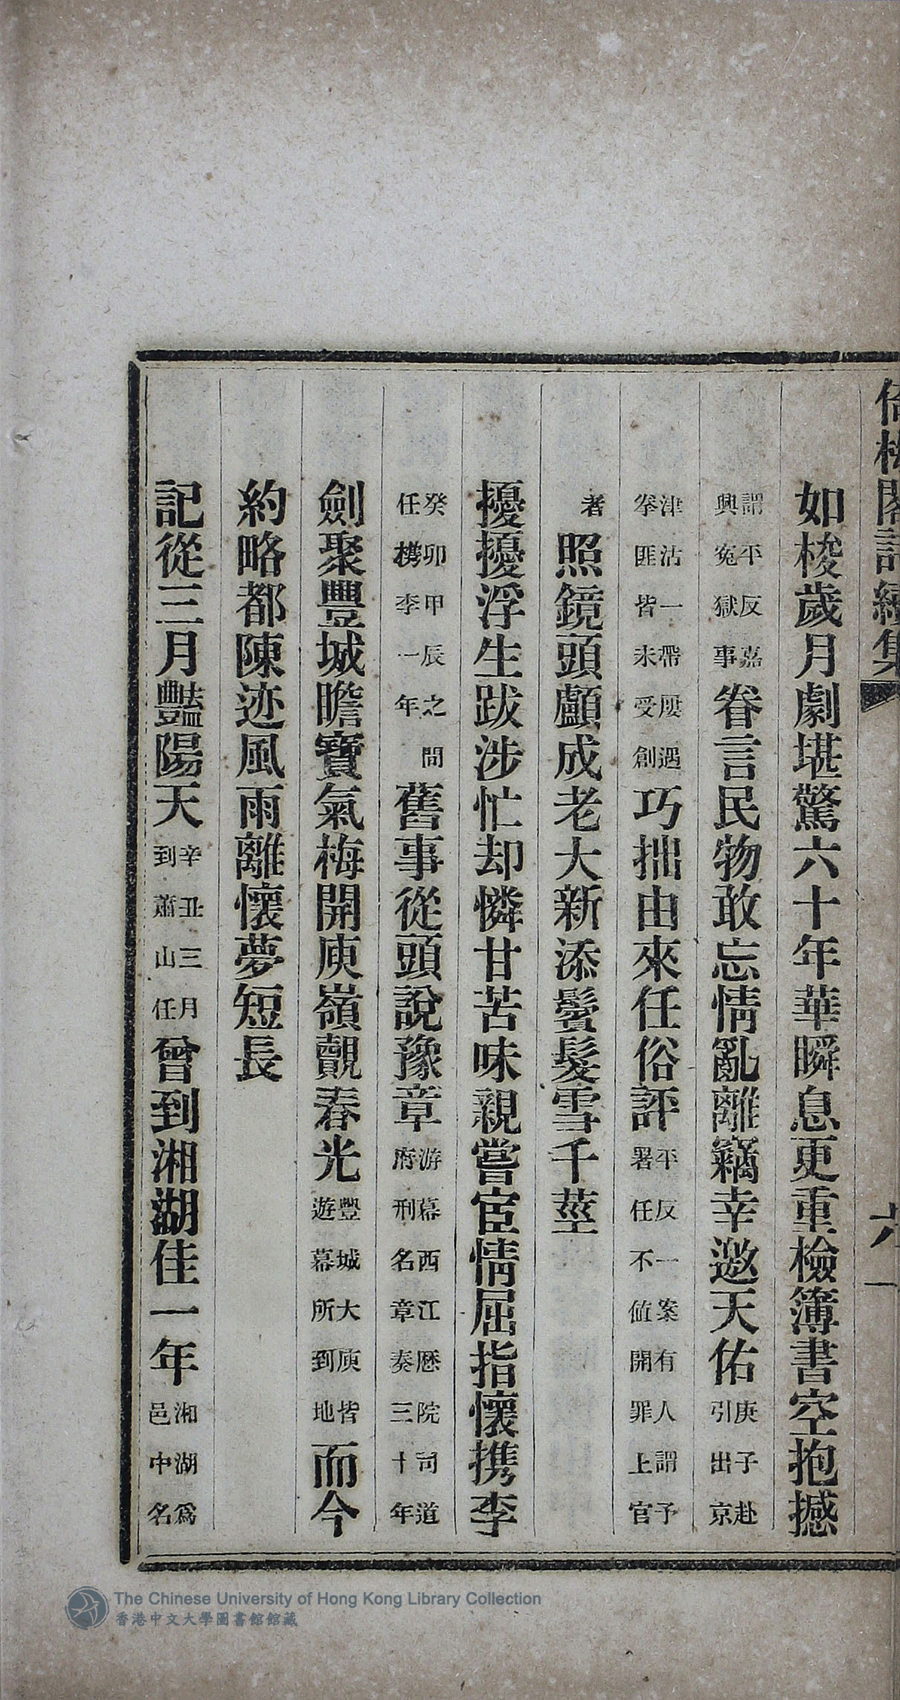 倚梅閣詩續集
如梭歲月劇堪驚六十年華瞬息更重檢簿書空抱撼
謂平反嘉興冤獄事眷言民物敢忘情亂離竊幸邀天佑庚子赴引出京
津沽一帶屢遇拳匪皆未受創巧拙由來任俗評平反一案有人謂予署任不值開罪上官
者照鏡頭顱成老大新添鬢髮雪千莖
擾擾浮生跋涉忙却憐甘苦味親嘗宦情屈指懷携李
癸卯甲辰之間任檇李一年舊事從頭說豫章游幕西江歷院司道府刑名章奏三十年
劍聚豐城瞻寶氣梅開庾嶺覿春光豐城大庾皆遊幕所到地而今
約略都陳迹風雨離懷夢短長
記從三月豔陽天辛丑三月到蕭山任曾到湘湖佳一年湘湖爲邑中名
The Chinese University of Hong Kong Library Collection
香港中文大學圖書館館藏